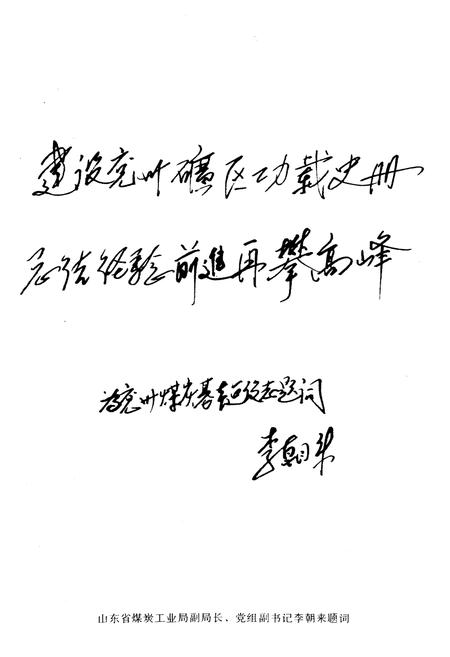 建设兖州礦区功载史册
总结经验前進再攀高峰
为兖州煤炭基建公司志题词
李朝来
山东省煤炭工业局副局长、党组副书记李朝来题词